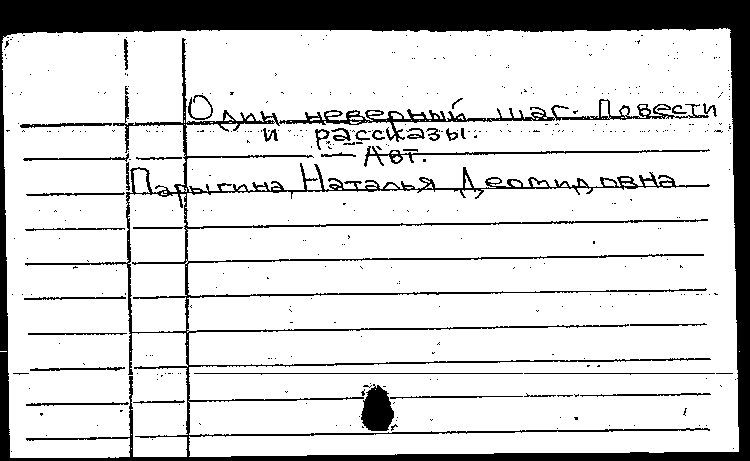 Один неверный шаг. Повести
и рассказы.
— Авт.
Парыгина Наталья Деомидовна